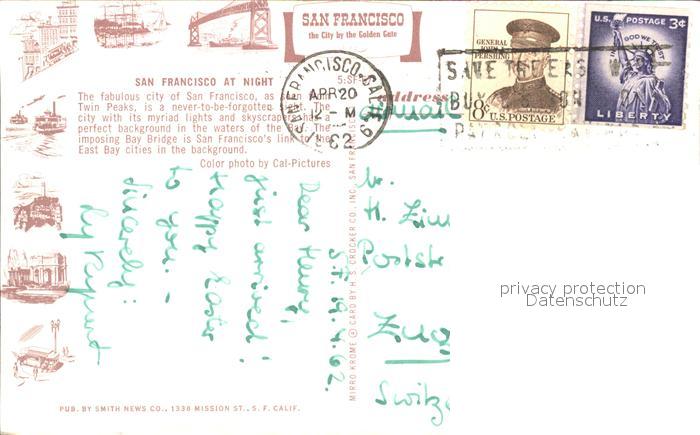 SAN FRANCISCO
the City by the Golden Gate
SAN FRANCISCO AT NIGHT
The fabulous city of San Francisco, as
Twin Peaks, is a never-to-be-forgotten The
city with its myriad lights and skyscrapers has a
perfect background in the waters of the The
imposing Bay Bridge is San Francisco's link to the
East Bay cities in the background.
Color photo by Cal-Pictures
SAN FRANCISCO, CALIF.
APR 20
12 - M
1962
GENERAL
JOHN J.
PERSHING
8¢ U.S. POSTAGE
U.S. POSTAGE 3¢
IN GOD WE TRUST
LIBERTY
BUY
Address
S.F. 19.4.62.
Dear Henry,
just arrived!
Happy Easter
to you. –
Sincerely:
H.
Zug
Switze
MIRRO KROME ® CARD BY H. S. CROCKER CO., INC. SAN FRANCISCO
PUB. BY SMITH NEWS CO., 1336 MISSION ST., S. F. CALIF.
privacy protection
Datenschutz